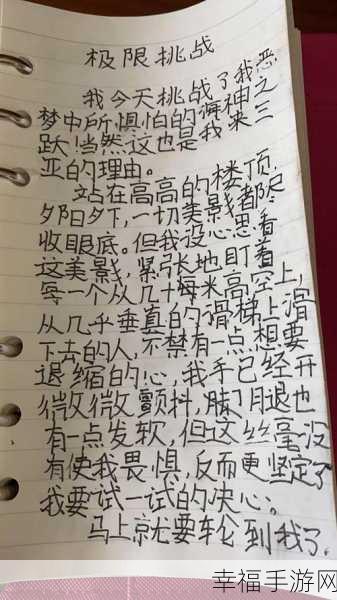 极限挑战
我今天挑战了我恶
梦中所惧怕的海神之
跃当然这也是我来三
亚的理由。
站在高高的楼顶,
夕阳夕下,一切美景都尽
收眼底。但我没心思看
这美景,紧张地盯着
每一个从几十每米高空上,
从几乎垂真的滑梯上滑
下去的人,不禁有一点想要
退缩的心,我手已经开
微微微颤抖,脚腿也
有一点发软,但这丝毫没
有使我畏惧,反而更坚定了
我要试一试的决心。
马上就要轮到我了.
幸福手游网